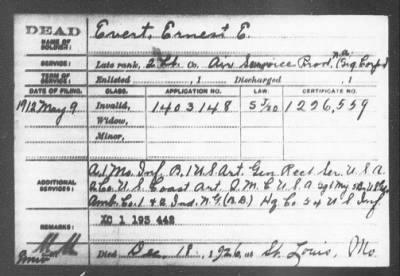 DEAD
NAME OF SOLDIER:
Evert, Ernest E.
SERVICE:
Late rank, 2 Lt. Co. Air Service Prod. (Sig Corps)
TERM OF SERVICE:
Enlisted , 1 Discharged , 1
DATE OF FILING. CLASS. APPLICATION NO. LAW. CERTIFICATE NO.
1912 May 9 Invalid, 1403148 1226,559
Widow,
Minor,
ADDITIONAL SERVICES:
A, 1 Mo. Inf, B, 1 U S Art. Gen Rect Ser. U. S. A
Co. U. S. Coast Art. Q. M. C. U S A
Amb. Co. 1 & 2 Ind. N. G. Hq Co. 54 U S Inf.
REMARKS:
XC 1 195 442
Died Dec. 19, 1926, at St. Louis, Mo.